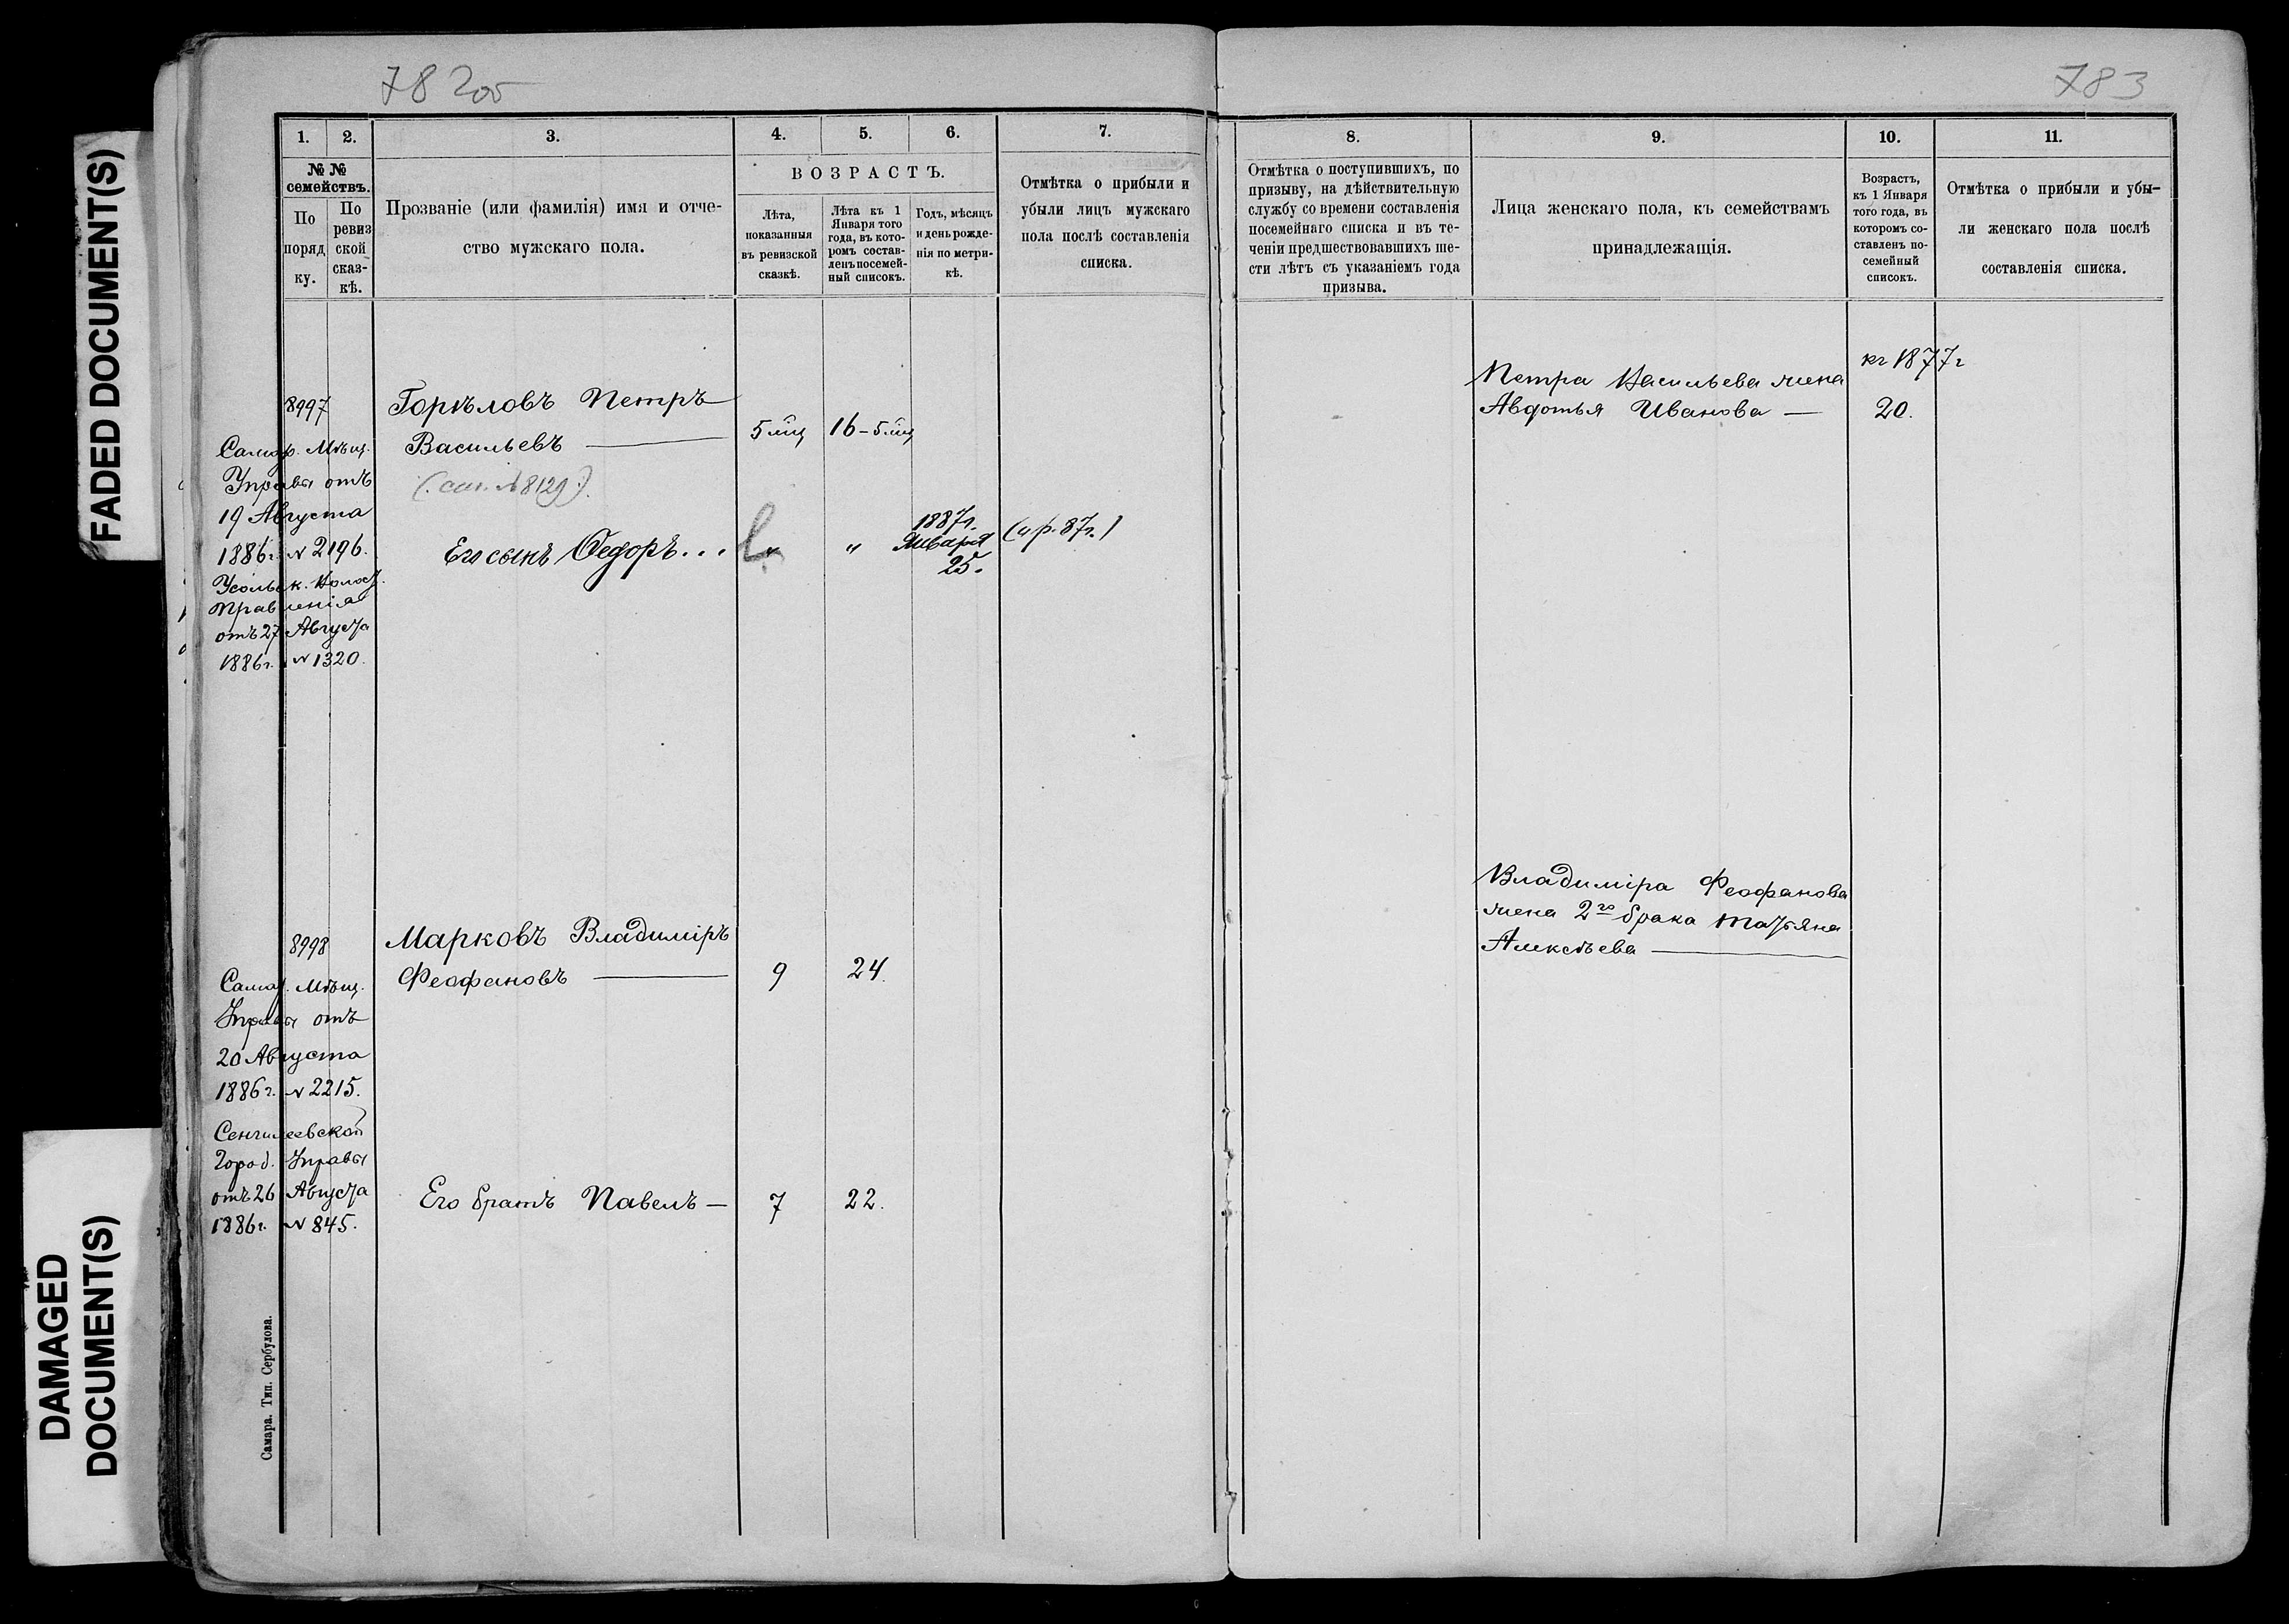 FADED DOCUMENT(S)
DAMAGED
DOCUMENT(S)
78 2об
1.
2.
3.
4.
5.
6.
7.
№ №
семействъ.
По
поряд
ку.
По
ревиз
ской
сказ-
кѣ.
Прозваніе (или фамилія) имя и отче-
ство мужскаго пола.
ВОЗРАСТЪ.
Лѣта,
показанныя
въ ревизской
сказкѣ.
Лѣта къ 1
Января того
года, въ кото-
ромъ состав-
ленъ посемей-
ный списокъ.
Годъ, мѣсяцъ
и день рожде-
нія по метри-
кѣ.
Отмѣтка о прибыли и
убыли лицъ мужскаго
пола послѣ составленія
списка.
8997
Самар. Мѣщ.
Управы отъ
19 Августа
1886г. № 2196.
Усольск. Волост.
Правленія
отъ 27 Августа
1886г. № 1320.
Горѣловъ Петръ
Васильевъ
5 мц
16-5 мц
(№ 8129).
Его сынъ Ѳедоръ...
"
"
1887г.
Января
25.
(п р. 87г.)
8998
Самар. Мѣщ.
Управы отъ
20 Августа
1886г. № 2215.
Сенгилеевской
Город. Управы
отъ 26 Августа
1886г. № 845.
Марковъ Владиміръ
Феофановъ
9
24.
Его братъ Павелъ —
7
22.
Самара. Тип. Сербулова.
783
8.
9.
10.
11.
Отмѣтка о поступившихъ, по
призыву, на дѣйствительную
службу со времени составленія
посемейнаго списка и въ те-
ченіи предшествовавшихъ ше-
сти лѣтъ съ указаніемъ года
призыва.
Лица женскаго пола, къ семействамъ
принадлежащія.
Возрастъ,
къ 1 Января
того года, въ
которомъ со-
ставленъ по-
семейный
списокъ.
Отмѣтка о прибыли и убы-
ли женскаго пола послѣ
составленія списка.
Петра Васильева жена
Авдотья Иванова —
къ 1877г
20.
Владиміра Феофанова
жена 2го брака Татьяна
Алексѣева